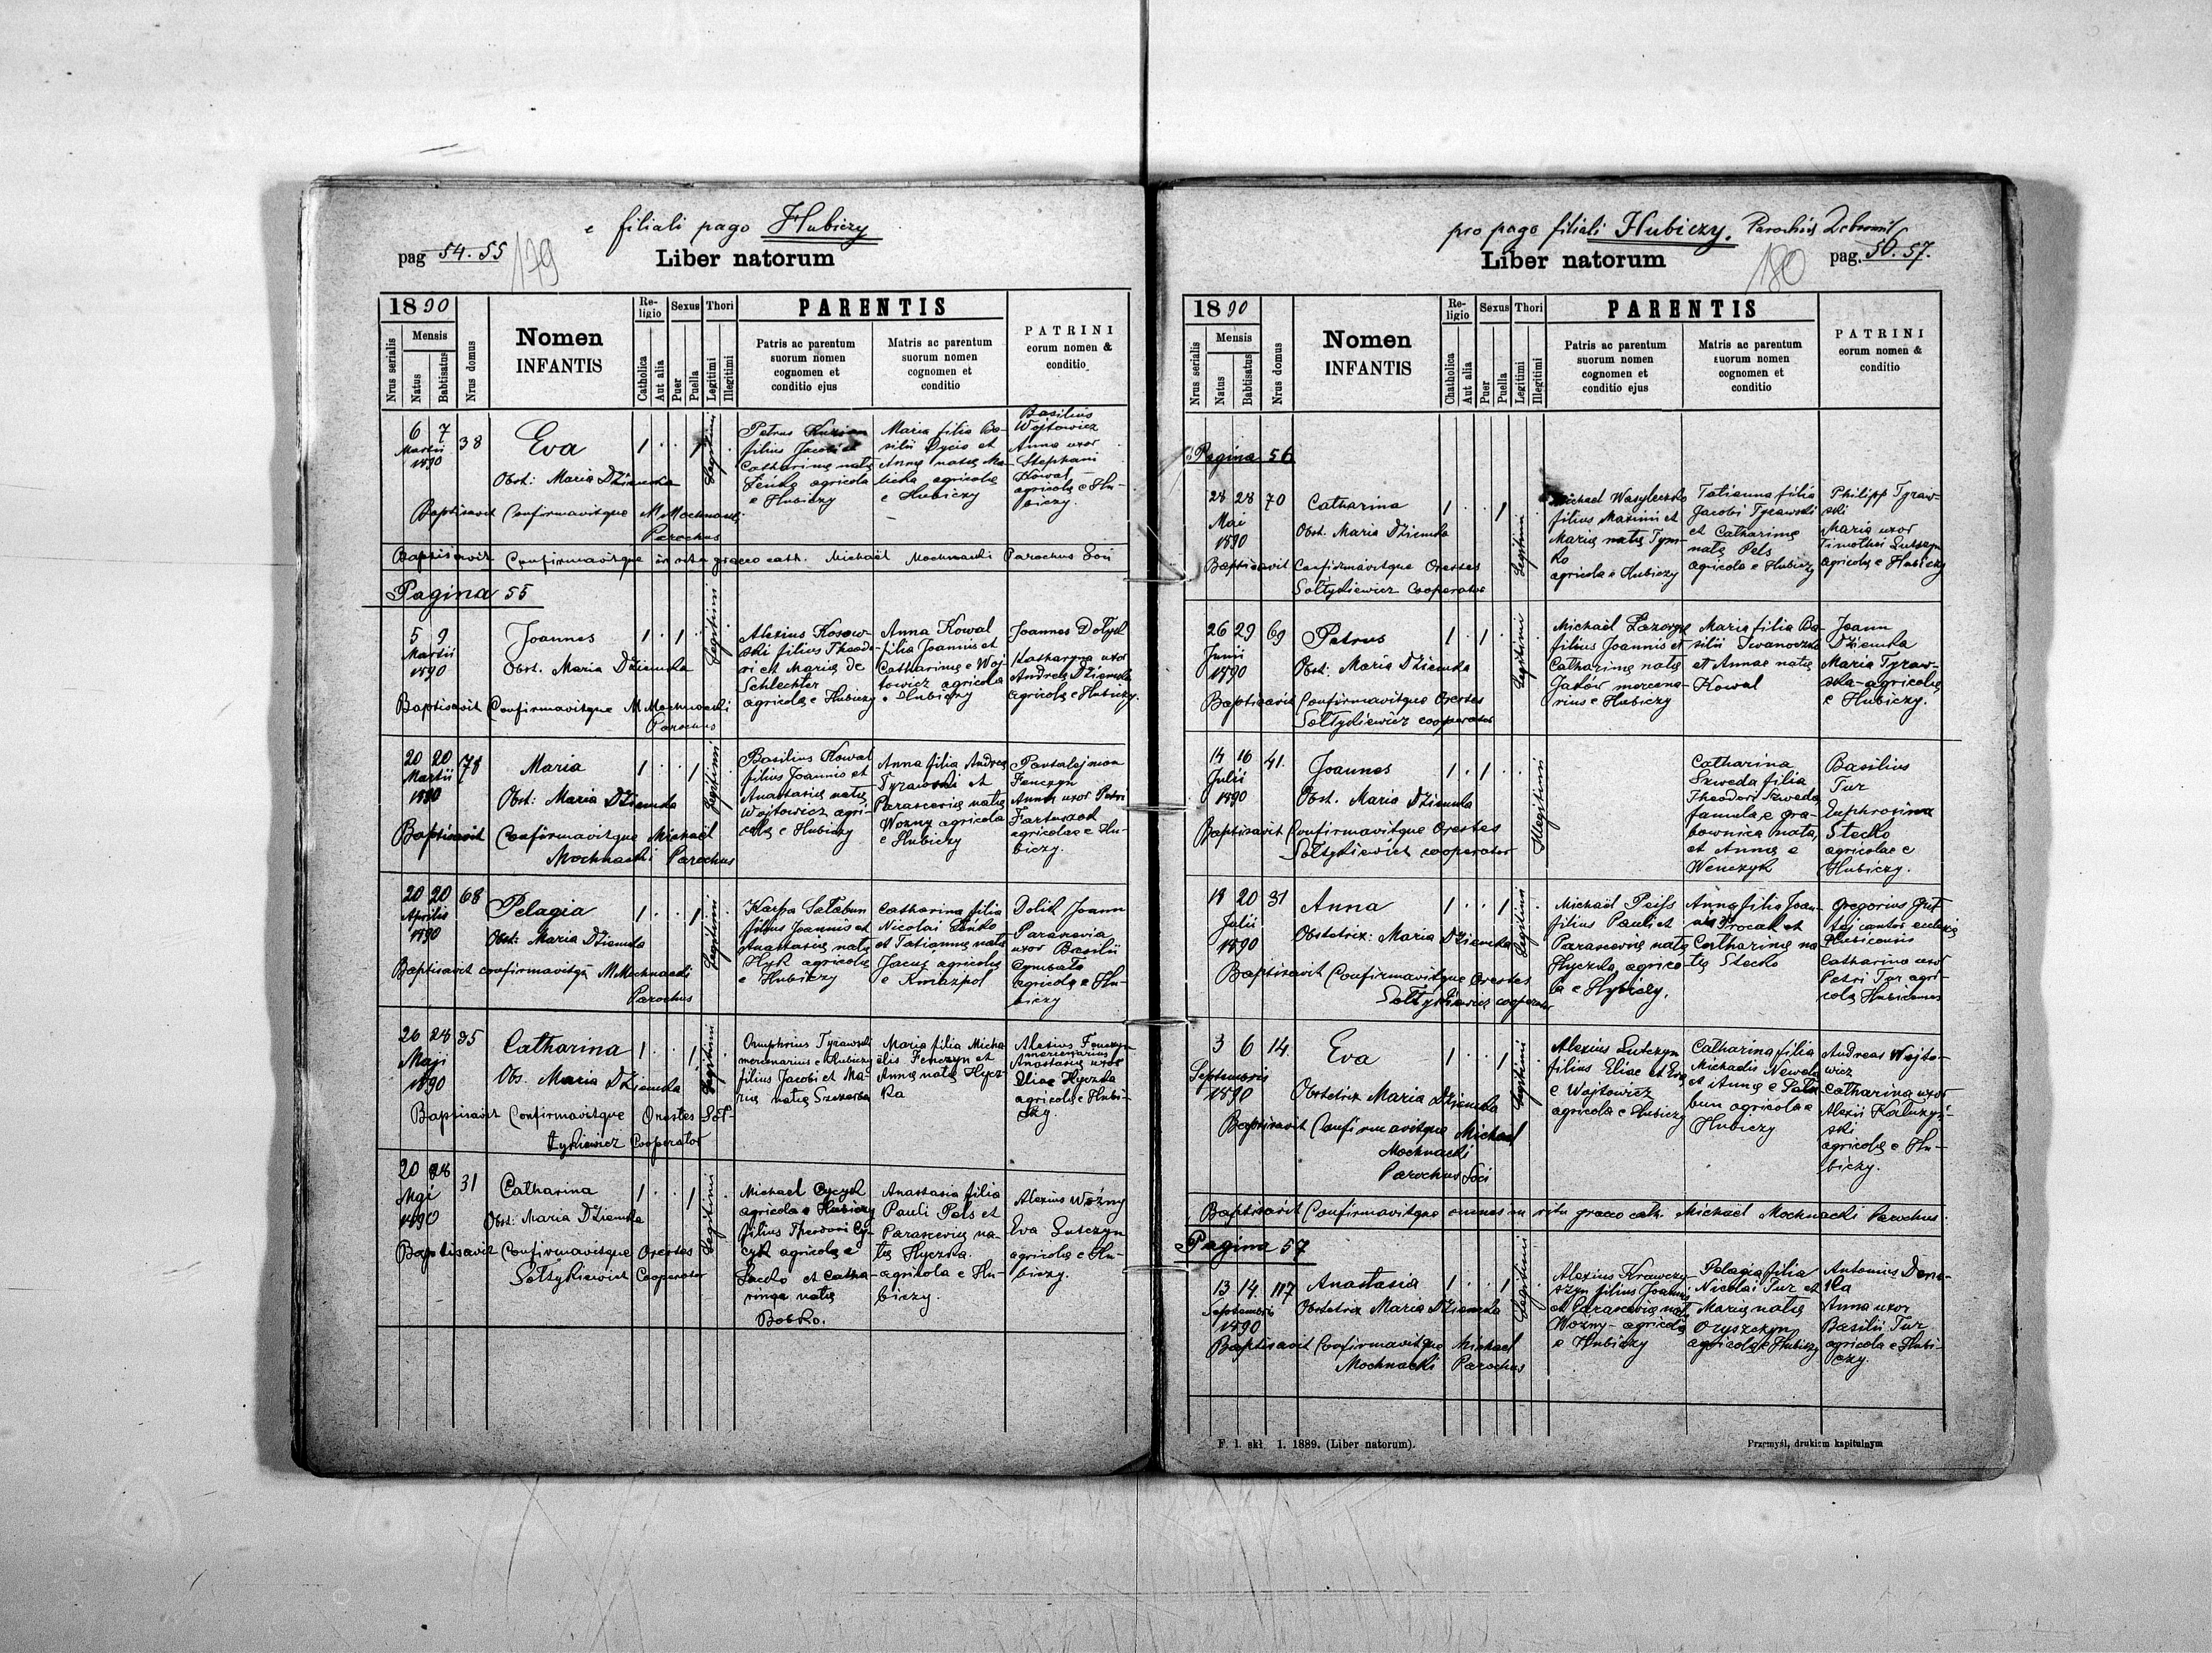 e filiali pago Hubiczy
pag 54. 55
179
Liber natorum
1890
Nrus serialis
Mensis
Natus
Babtisatus
Nrus domus
Nomen
INFANTIS
Re-
ligio
Catholica
Aut alia
Sexus
Puer
Puella
Thori
Legitimi
Illegitimi
PARENTIS
Patris ac parentum
suorum nomen
cognomen et
conditio ejus
Matris ac parentum
suorum nomen
cognomen et
conditio
PATRINI
eorum nomen &
conditio
6 7
Martii
1890
38
Eva
Obst: Maria Dziemska
1 . . 1
Legitimi
Petrus
filius Jacobi et
Catharinę natę
agricola
e Hubiczy
Maria filia Ba-
silii Dycio et
Annę natę
agricolę
e Hubiczy
Basilius
Wojtowicz
Anna uxor
Stephani
Kowal
agricolę e Hu-
biczy.
Baptisavit Confirmavitque M Mochnacki
Parochus
Baptisavit Confirmavitque in ritu graeco cath. Michaël Mochnacki Parochus Loci
Pagina 55
5 9
Martii
1890
Joannes
Obst. Maria Dziemska
1 . 1 .
Legitimi
Alexius Kosow-
ski filius Theodo-
ri et Marię de
Schlechter
agricolę e Hubiczy
Anna Kowal
filia Joannis et
Catharinę e Woj-
towicz agricola
e Hubiczy
Joannes Dolyk
Katharyna uxor
Andreę Dziemska
agricolę e Hubiczy.
Baptisavit Confirmavitque M Mochnacki
Parochus
20 20
Martii
1890
78
Maria
Obst: Maria Dziemska
1 . . 1
Legitimi
Basilius Kowal
filius Joannis et
Anastasię natę
Wojtowicz agri-
colę e Hubiczy
Anna filia Andreę
Tyrawski et
Parascevię natę
Wozny agricola
e Hubiczy
Pantalejmon
Fenczyn
Anna uxor Petri
agricolae e Hu-
biczy.
Baptisavit Confirmavitque Michaël
Mochnacki Parochus
20 20
Aprilis
1890
68
Pelagia
Obst: Maria Dziemska
1 . . 1
Legitimi
Karpa Salabun
filius Joannis et
Anastasię natę
Hyk agricolę
e Hubiczy
Catharina filia
Nicolai Senko
et Tatiannę natę
Jacuś agricolę
e Kniazpol
Dolik Joann
Parascevia
uxor Basilii
Cymbala
agricolę e Hu-
biczy
Baptisavit confirmavitque M Mochnacki
Parochus
26 28
Maji
1890
35
Catharina
Obs. Maria Dziemska
1 . . 1
Legitimi
Onuphrius Tyrawski
mercenarius e Hubiczy
filius Jacobi et Ma-
rię natę Szczerba
Maria filia Micha
ëlis Fenczyn et
Annę natę Hycz-
ka
Alexius Fenczyn
mercenarius
Anastasia uxor
Eliae Hyczka
agricolę e Hubi-
czy.
Baptisavit Confirmavitque Orestes Soł-
tykiewicz Cooperator
20 28
Mai
1890
31
Catharina
Obst: Maria Dziemska
1 . . 1
Legitimi
Michael Cyczyk
agricola e Hubiczy
filius Theodori Cy-
czyk agricolę e
Lacko et Catha-
rinae natę
Bobko.
Anastasia filia
Pauli Pels et
Parascevię na-
tę Hyczka.
agricola e Hu-
biczy.
Alexius Wozny
Eva Lutczyn
agricolę e Hu-
biczy.
Baptisavit Confirmavitque Orestes
Sołtykiewicz Cooperator
pro pago filiali Hubiczy. Parochiis
pag. 56. 57.
180
Liber natorum
1890
Nrus serialis
Mensis
Natus
Babtisatus
Nrus domus
Nomen
INFANTIS
Re-
ligio
Chatholica
Aut alia
Sexus
Puer
Puella
Thori
Legitimi
Illegitimi
PARENTIS
Patris ac parentum
suorum nomen
cognomen et
conditio ejus
Matris ac parentum
suorum nomen
cognomen et
conditio
PATRINI
eorum nomen &
conditio
Pagina 56
28 28
Mai
1890
70
Catharina
Obst. Maria Dziemska
1 . . 1
Legitimi
Michael Wasyleczko
filius Maximi et
Marię natę Tym-
ko
agricola e Hubiczy
Tatianna filia
Jacobi Tyrawski
et Catharinę
natę Pels
agricola e Hubiczy
Philipp Tyraw-
ski
Maria uxor
Timothei Lutczyn
agricolę e Hubiczy
Baptisavit Confirmavitque Orestes
Sołtykiewicz Cooperator
26 29
Junii
1890
69
Petrus
Obst. Maria Dziemska
1 . 1 .
Legitimi
Michael Łazoryk
filius Joannis et
Catharinę natę
Jaków mercena-
rius e Hubiczy
Maria filia Ba-
silii Iwanoczko
et Annae natę
Kowal
Joann
Dziemska
Maria Tyraw-
ska-agricolę
e Hubiczy.
Baptisavit Confirmavitque Orestes
Sołtykiewicz cooperator
14 16
Julii
1890
41.
Joannes
Obst. Maria Dziemska
1 . 1 . .
Illegitimi
Catharina
Szweda filia
Theodori Szweda
famula e Gra-
bownica nata,
et Annę e
Wenczyk
Basilius
Tur
Euphrosina
Stecko
agricolae e
Hubiczy.
Baptisavit Confirmavitque Orestes
Sołtykiewicz cooperator
18 20
Julii
1890
31
Anna
Obstetrix: Maria Dziemska
1 . . 1
Legitimi
Michaël Peiss
filius Pauli et
Parascevię natę
Hyczka agrico-
la e Hubiczy.
Anna filia Joan-
nis Procak et
Catharinę na
tę Stecko
Gregorius Gut
tej cantor ecclezię
Hubicensis
Catharina uxor
Petri Tur agri-
colę Hubicenses
Baptisavit Confirmavitque Orestes
Sołtykiewicz cooperator
3 6
Septembris
1890
14.
Eva
Obstetrix Maria Dziemska
1 . . 1
Legitimi
Alexius Lutczyn
filius Eliae et Evę
e Wojtowicz
agricola e Hubiczy
Catharina filia
Michaelis Newola
et Annę e Sała-
bun agricola e
Hubiczy
Andreas Wojto-
wicz
Catharina uxor
Alexii Kałużyń-
ski
agricolę e Hu-
biczy.
Baptisavit Confirmavitque Michael
Mochnacki
Parochus Loci
Baptisavit Confirmavitque omnes in ritu graeco cath. Michael Mochnacki Parochus.
Pagina 57
13 14.
Septembris
1890
117
Anastasia
Obstetrix Maria Dziemska
1 . . 1
Legitimi
Alexius Krawczy-
szyn filius Joannis
et Parascevię nat.
Wozny-agricola
e Hubiczy
Pelagia filia
Nicolai Tur et
Marię natę
Oryszczyn
agricolę e Hubiczy
Antonius Dem-
ka
Anna uxor
Basilii Tur
agricola e Hubi-
czy.
Baptisavit Confirmavitque Michael
Mochnacki Parochus
F. 1. skł 1. 1889. (Liber natorum).
Przemyśl, drukiem kapitulnym